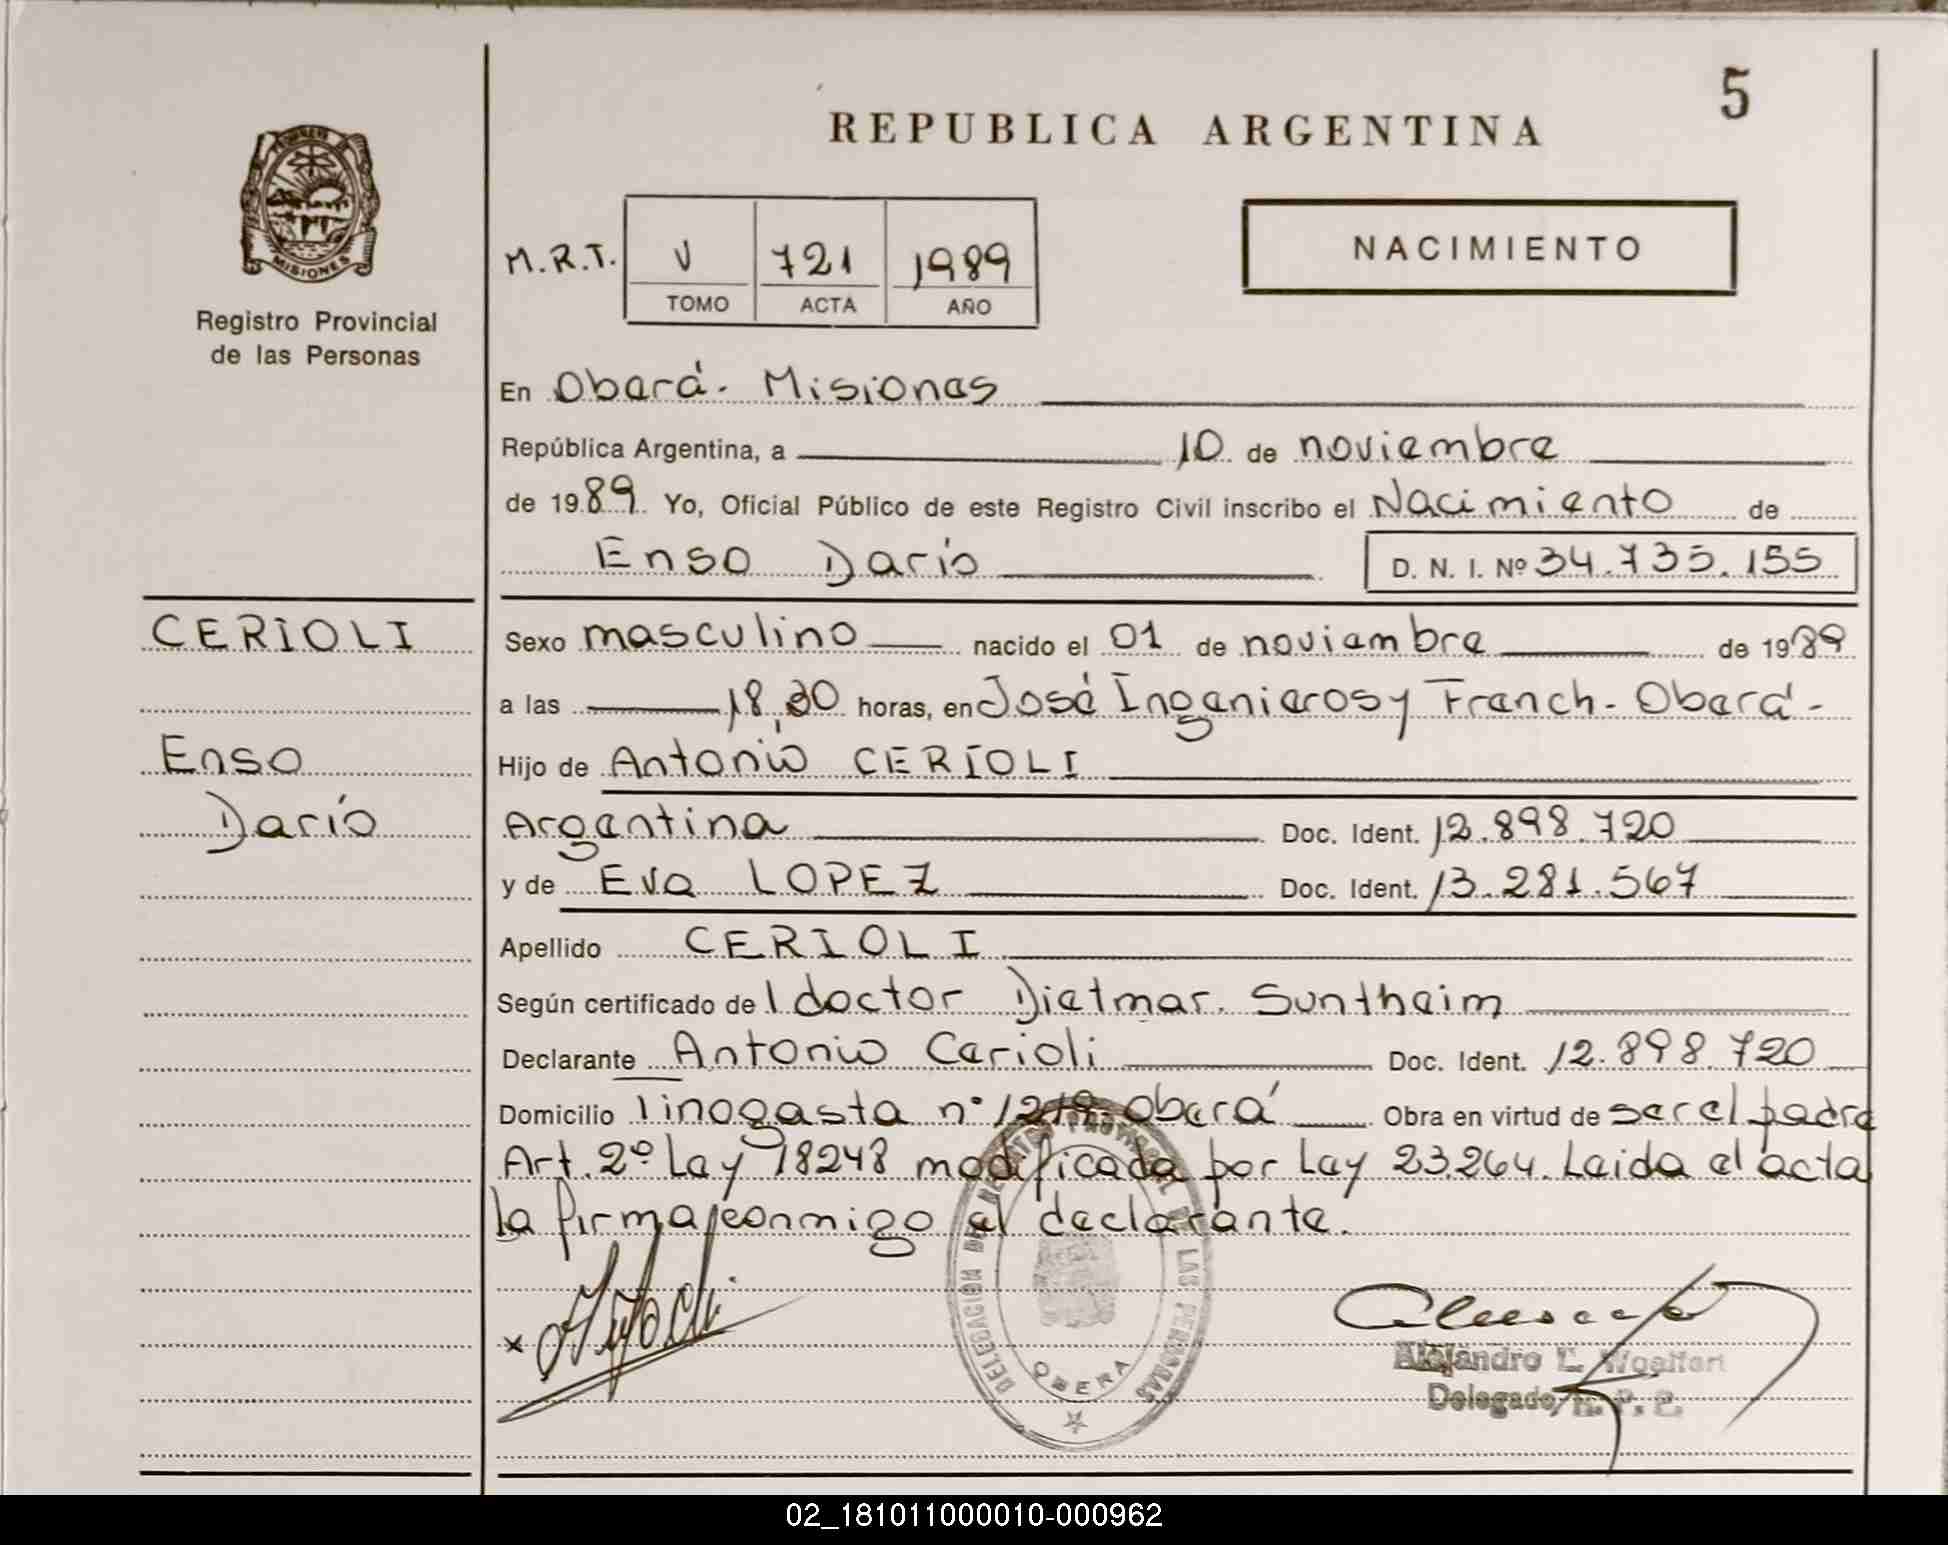 5
REPUBLICA ARGENTINA
MISIONES
Registro Provincial
de las Personas
M.R.T. V 721 1989
TOMO ACTA AÑO
NACIMIENTO
En Oberá - Misiones
República Argentina, a 10 de noviembre
de 1989. Yo, Oficial Público de este Registro Civil inscribo el Nacimiento de
Enso Darío D. N. I. Nº 34.735.155
CERIOLI
Enso
Darío
Sexo masculino nacido el 01 de noviembre de 1989
a las 18,30 horas, en José Ingenieros y Franch - Oberá -
Hijo de Antonio CERIOLI
Argentina Doc. Ident. 12.898.720
y de Eva LOPEZ Doc. Ident. 13.281.567
Apellido CERIOLI
Según certificado de l doctor Dietmar Suntheim
Declarante Antonio Cerioli Doc. Ident. 12.898.720
Domicilio Tinogasta nº Oberá Obra en virtud de ser el padre
Art. 2º Ley 18248 modificada por Ley 23.264. Leida el acta
la firma conmigo el declarante.
DELEGACION DEL REGISTRO PROVINCIAL DE LAS PERSONAS
OBERA
Alejandro
Delegado R. P. P.
02_181011000010-000962